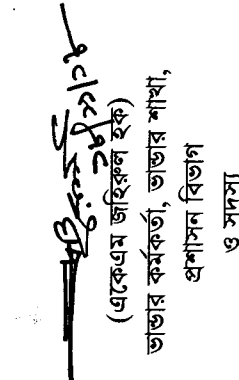 (একেএম জহিরুল হক)
ভান্ডার কর্মকর্তা, ভান্ডার শাখা,
প্রশাসন বিভাগ
ও সদস্য